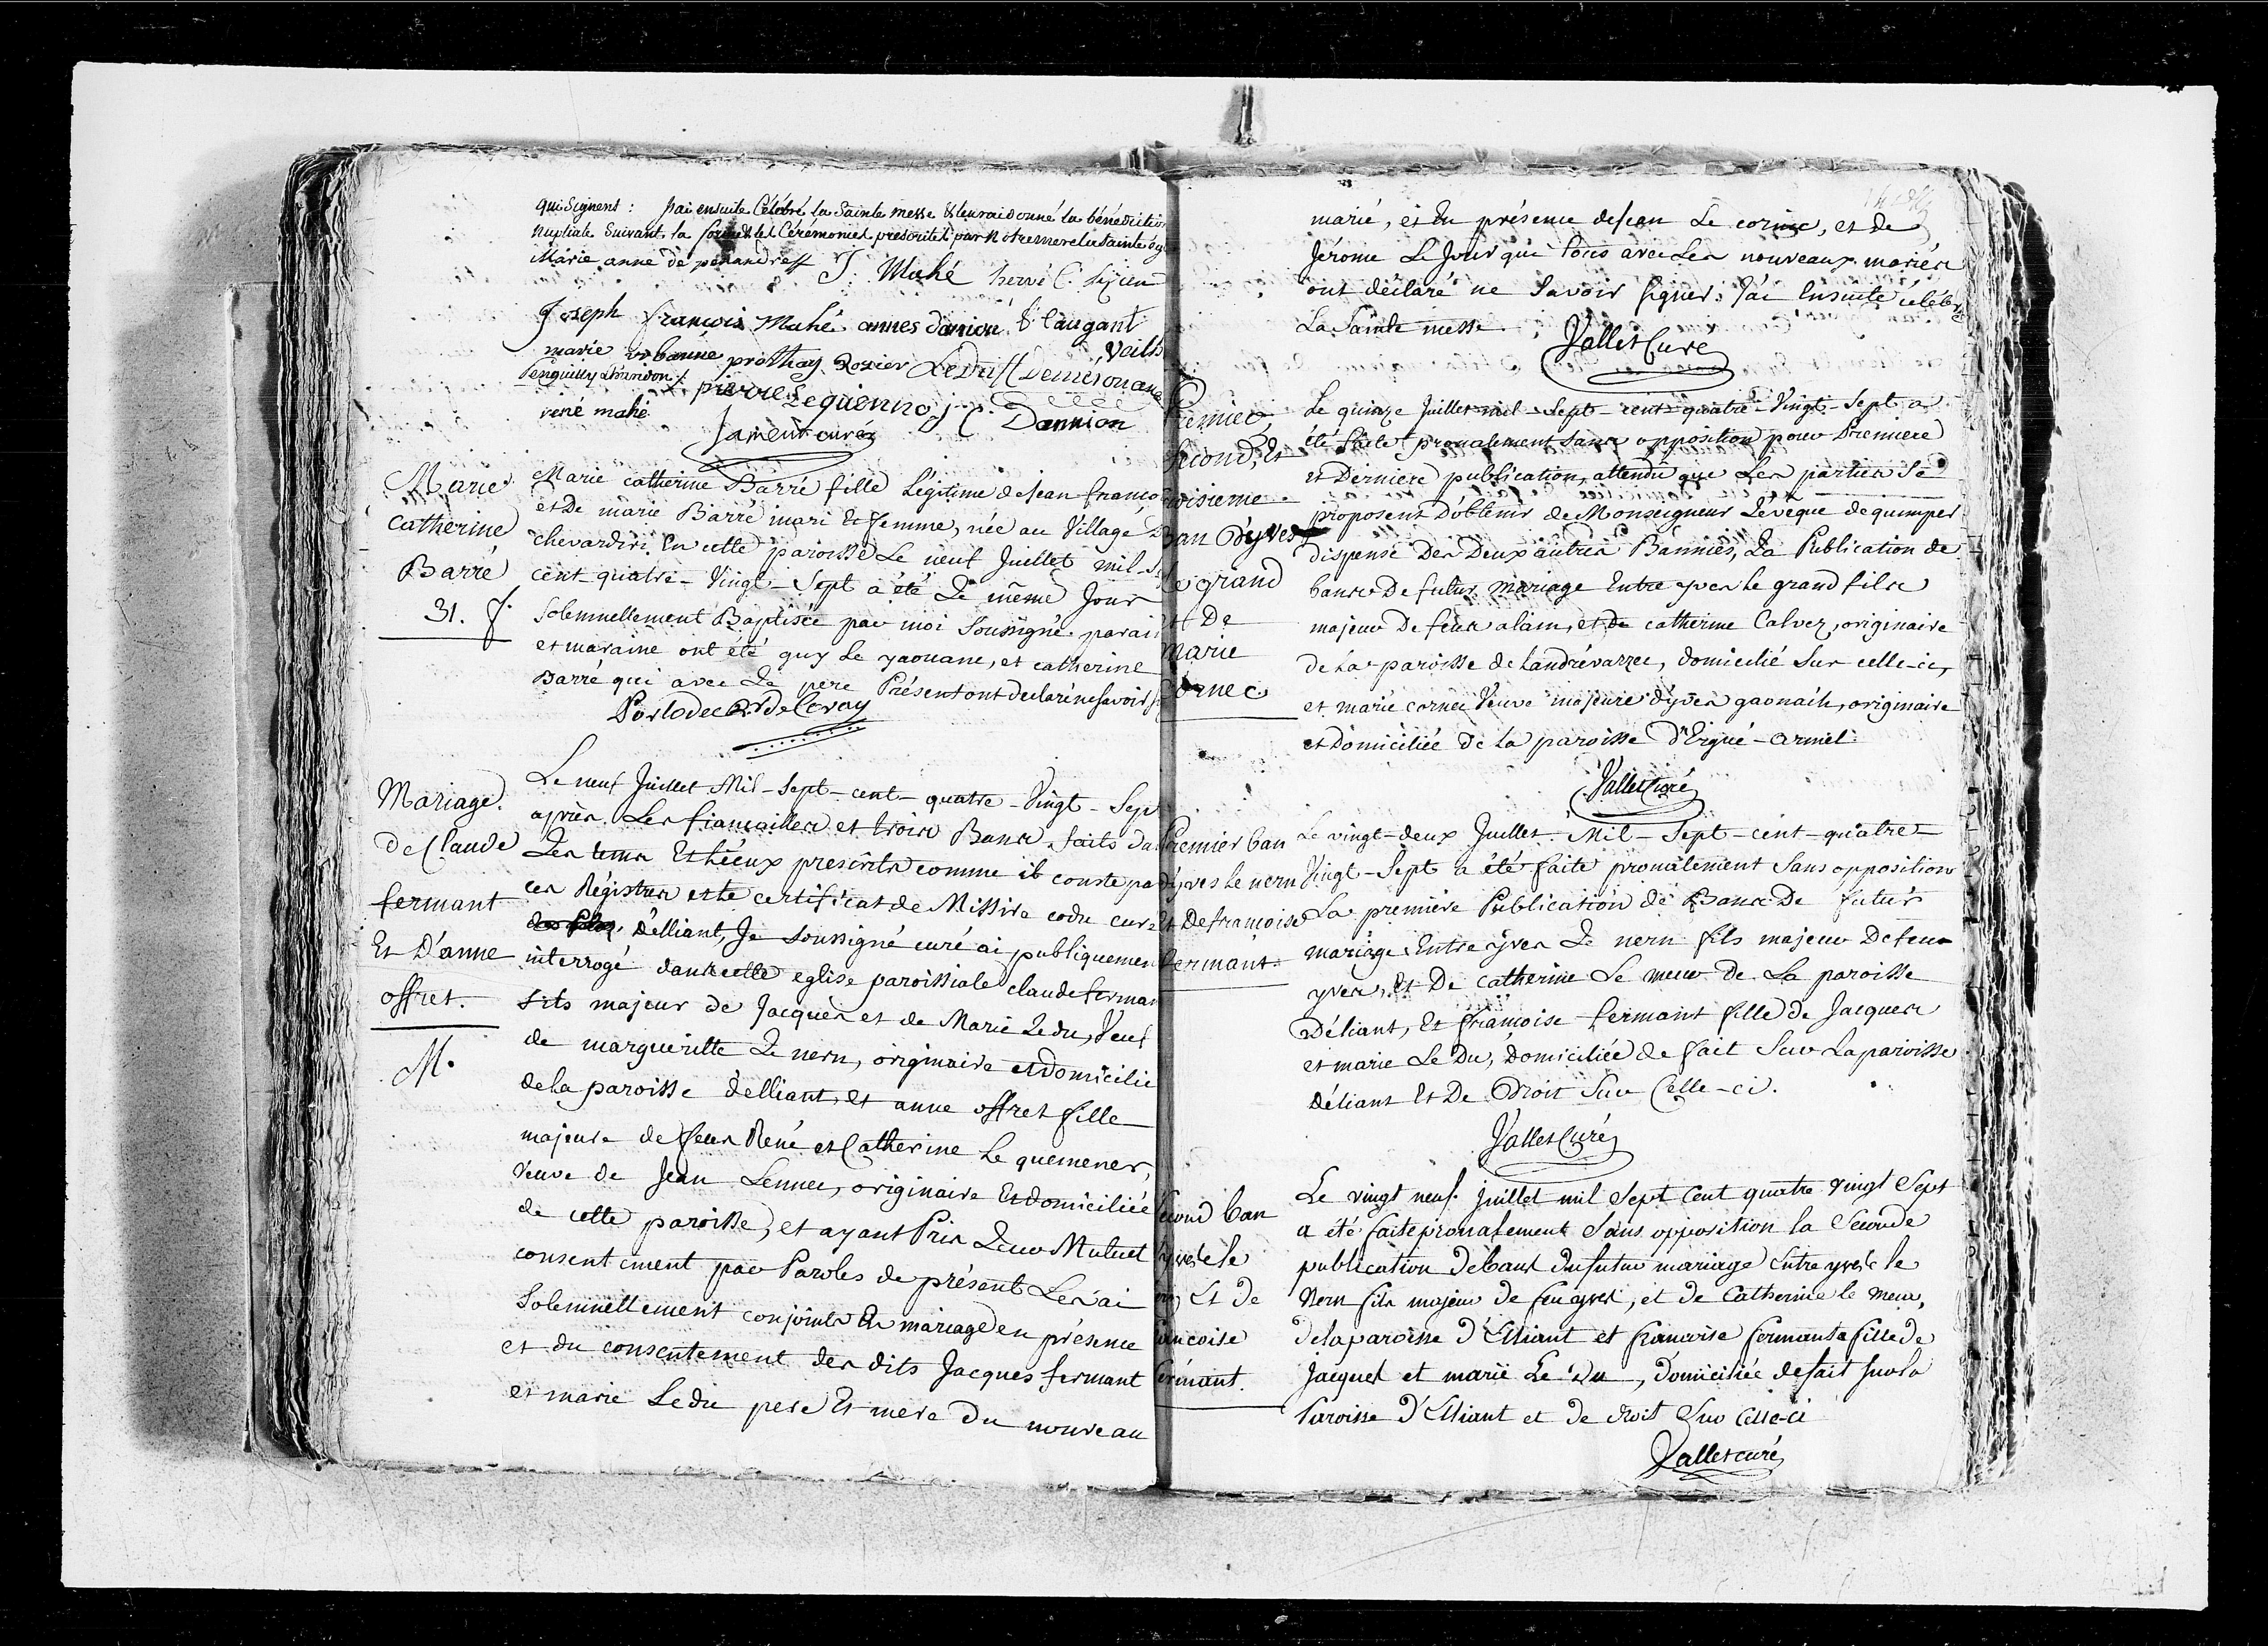 qui Signent : J'ai ensuite Célébré la Sainte messe & leur ai donné la bénédiction
nuptiale Suivant la forme & les Cérémonies prescrites par Notre mere la Sainte
Marie anne de penandreff J. Mahé hervé C.
Joseph françois Mahé annes danion
marie urbanne prothay Rozier LeDall
Penguilly
rené mahé pierre Leguenno J C. Dannion
Jameur curé
Marie
catherine
Barré
31. f.
Marie catherine Barré fille Légitime de Jean françois
et de marie Barré mari Et femme, née au Village
chevardiri En cette paroisse Le neuf Juillet mil S
cent quatre-Vingt-Sept a été Le même Jour
Solemnellement Baptisée par moi Soussigné. parain
et maraine ont été guy Le yaouanc, et catherine
Barré qui avec Le pere Présent ont déclaré ne Savoir
Mariage
de Claude
fermant
Et D'anne
offret.
M.
Le neuf Juillet Mil-Sept-cent-quatre-Vingt-Sept
après Les fiançailles et trois Bans faits da
Les tems Et Lieux prescrits comme il conste pa
ces Régistres et le certificat de Missire codu curé
d'elliant, Je Soussigné curé ai publiquement
interrogé dans cette eglise paroissiale claude fermant
fils majeur de Jacques et de Marie Ledu, Veuf
de marguerite Le nern, originaire et domicilié
de la paroisse d'elliant, et anne offret fille
majeure de feus René et Catherine Le quemener,
Veuve de Jean Lennec, originaire Et domiciliée
de cette paroisse, et ayant Pris Leur Mutuel
consentement par Paroles de présent Les ai
Solemnellement conjoints En mariage en présence
et du consentement des dits Jacques fermant
et marie Ledu pere Et mere Du nouveau
marié, et En présence de Jean Le cornic, et de
Jérome Le Jour qui tous avec Les nouveaux mariés
ont déclaré ne Savoir Signer. J'ai Ensuite célébré
La Sainte messe. Vallet Curé
Premier,
Second, Et
troisieme
Ban D'yves
Le grand
et De
Marie
Cornec
Le quinze Juillet mil-Sept-cent-quatre-Vingt-Sept a
été faite pronalement Sans opposition pour Premiere
et Derniere publication, attendu que Les parties Se
proposent D'obtenir de Monseigneur L'évêque de quimper
dispense Des Deux autres Bannies, La Publication de
bans De futur Mariage Entre yves Le grand fils
majeur De feus alain, et de catherine Calvez, originaire
de La paroisse de Landrévarzec, domicilié Sur celle-ci,
et marie cornec Veuve majeure d'yves gaonach, originaire
et Domiciliée de La paroisse D'Ergué-armel.
Vallet Curé
Premier ban
d'yves Le nern
Et De françoise
fermant.
Le vingt-deux Juillet Mil-Sept-cent-quatre
Vingt-Sept a été faite pronalement Sans opposition
La premiere Publication de Bans De futur
mariage Entre yves Le nern fils majeur De feu
yves, Et De catherine Le meur De La paroisse
D'éliant, Et françoise fermant fille de Jacques
et marie Le Du, domiciliée de fait Sur La paroisse
D'éliant Et De Droit Sur Celle-ci.
Vallet Curé
Second ban
yves le
Et de
françoise
fermant.
Le vingt neuf juillet mil Sept Cent quatre vingt Sept
a été faite pronalement Sans opposition la Seconde
publication de bans du futur mariage Entre yves le
Nern fils majeur de feu yves, et de Catherine le meur,
de la paroisse d'Elliant et françoise fermant fille de
Jacques et marie Le Du, Domiciliée de fait Sur la
Paroisse d'Elliant et de droit Sur Celle-ci
Vallet curé